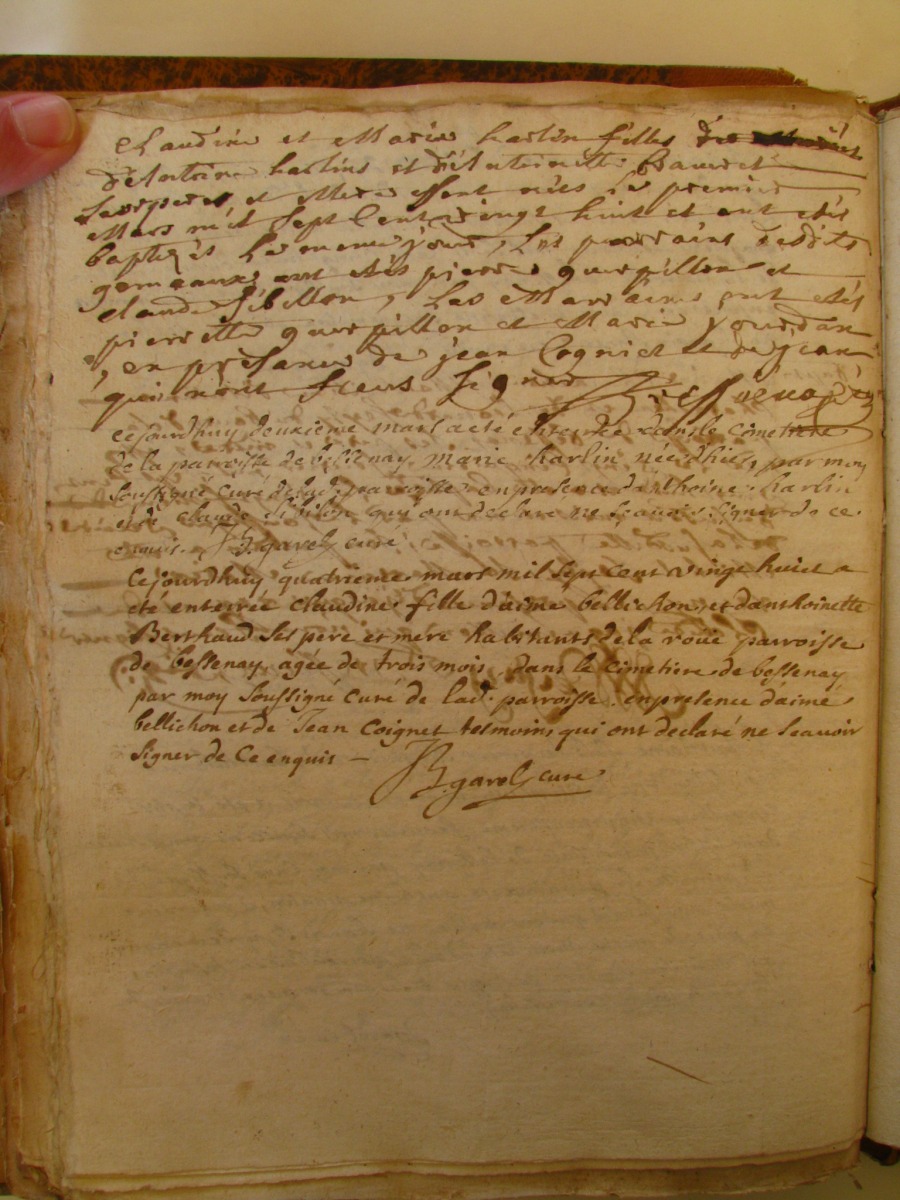 Claudine et Marie harlin filles
d'Antoine harlins et d'Antoinette
Leurs pere et Mere sont nées Le premier
Mars mil Sept Cent vingt huit et ont etés
baptisés Le meme jour, Les parrains desdits
gemeaux ont etés pierre guerpillon et
claude fibillon, Les Marraines ont etés
pierrette guerpillon et Marie jourdan
, en presance de jean Cogniet et de jean
qui n'ont sceus Signer
cejourdhuy deuxieme mars a eté enterrée dans le cimetiere
de la parroisse de bessenay marie harlin née dhier, par moy
soussigné curé de lad. parroisse en presence danthoine harlin
et de claude qui ont declaré ne scavoir signer de ce
enquis. B. garel curé
Cejourdhuy quatrieme mars mil sept cent vingt huict a
eté enterrée claudine fille d'aime bellichon, et danthoinette
Berthaud ses pere et mere habitants de la roüe parroisse
de bessenay, agée de trois mois, dans le cimetiere de bessenay
par moy soussigné curé de lad. parroisse. en presence daime
bellichon et de Jean Coignet tesmoins qui ont declaré ne scavoir
signer de Ce enquis —
B. garel curé